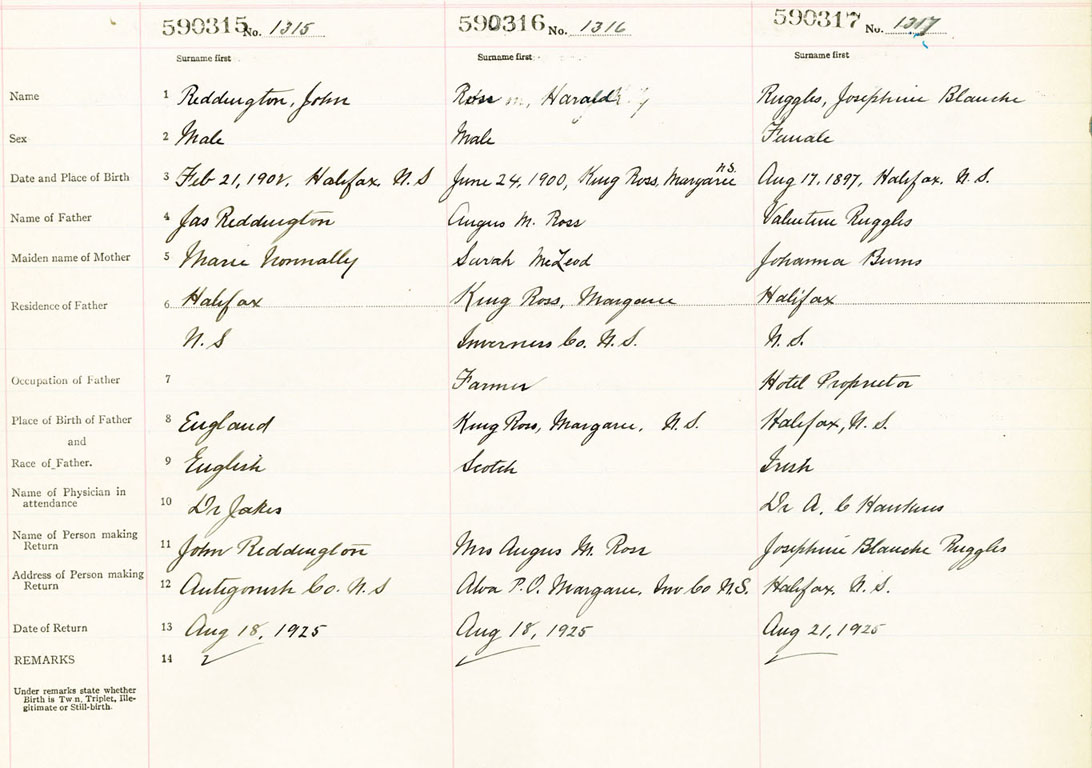 590315 No. 1315 590316 No. 1316 590317 No. 1317
Surname first Surname first Surname first
Name 1 Reddington, John Ross, Harald Ruggles, Josephine Blanche
Sex 2 Male Male Female
Date and Place of Birth 3 Feb 21, 1902, Halifax, N.S June 24, 1900, King Ross, Margaree N.S. Aug 17, 1897, Halifax, N.S.
Name of Father 4 Jas Reddington Angus M. Ross Valentine Ruggles
Maiden name of Mother 5 Marie Nonnally Sarah McLeod Johanna Burns
Residence of Father 6 Halifax King Ross, Margaree Halifax
N.S Inverness Co. N.S. N.S.
Occupation of Father 7 Farmer Hotel Proprietor
Place of Birth of Father 8 England King Ross, Margaree, N.S. Halifax, N.S.
and
Race of Father. 9 English Scotch Irish
Name of Physician in
attendance 10 Dr Jakes Dr A. C Hawkins
Name of Person making
Return 11 John Reddington Mrs Angus M. Ross Josephine Blanche Ruggles
Address of Person making
Return 12 Antigonish Co. N.S Alva P.O. Margaree, Inv Co N.S. Halifax, N.S.
Date of Return 13 Aug 18, 1925 Aug 18, 1925 Aug 21, 1925
REMARKS 14
Under remarks state whether
Birth is Tw n, Triplet, Ille-
gitimate or Still-birth.